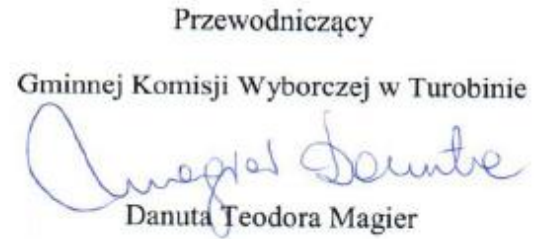 Przewodniczący
Gminnej Komisji Wyborczej w Turobinie
Magier Danuta
Danuta Teodora Magier